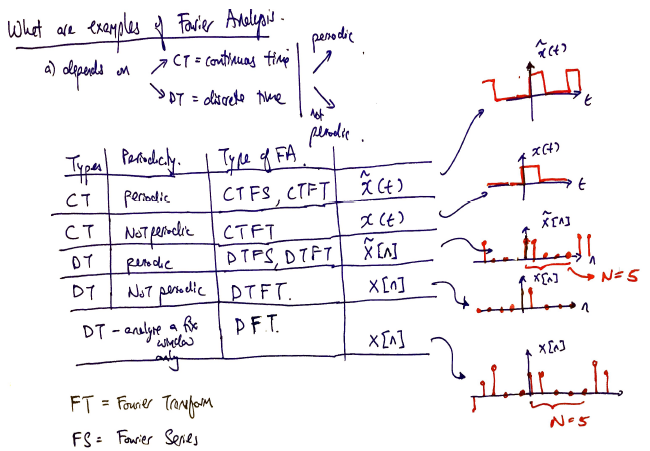 What are examples of Fourier Analysis.
a) depends on
CT = continuous time
DT = discrete time
periodic
not periodic
Types Periodicity. Type of FA.
CT periodic CTFS, CTFT x̃(t)
CT Not periodic CTFT x(t)
DT periodic DTFS, DTFT x̃[n]
DT Not periodic DTFT. x[n]
DT - analyse a fix window only DFT. x[n]
FT = Fourier Transform
FS = Fourier Series
x̃(t)
t
x(t)
t
x̃[n]
n
N=5
x[n]
n
x[n]
N=5